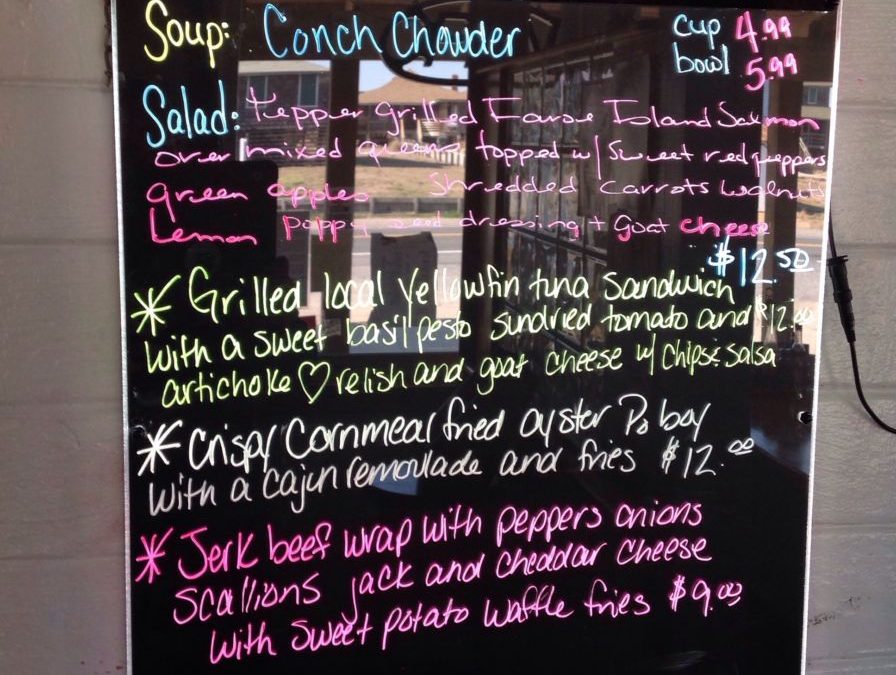 Soup: Conch Chowder cup 4.99
bowl 5.99
Salad: Pepper grilled Faroe Island Salmon
over mixed greens topped w/ Sweet red peppers
green apples Shredded Carrots walnuts
Lemon Poppy seed dressing + Goat cheese
$12.50
* Grilled local yellowfin tuna sandwich
with a sweet basil pesto sundried tomato and $12.00
artichoke ♡ relish and goat cheese w/ chips & salsa
* Crispy Cornmeal fried oyster Po boy
with a cajun remoulade and fries $12.00
* Jerk beef wrap with peppers onions
scallions jack and cheddar cheese
with sweet potato waffle fries $9.00